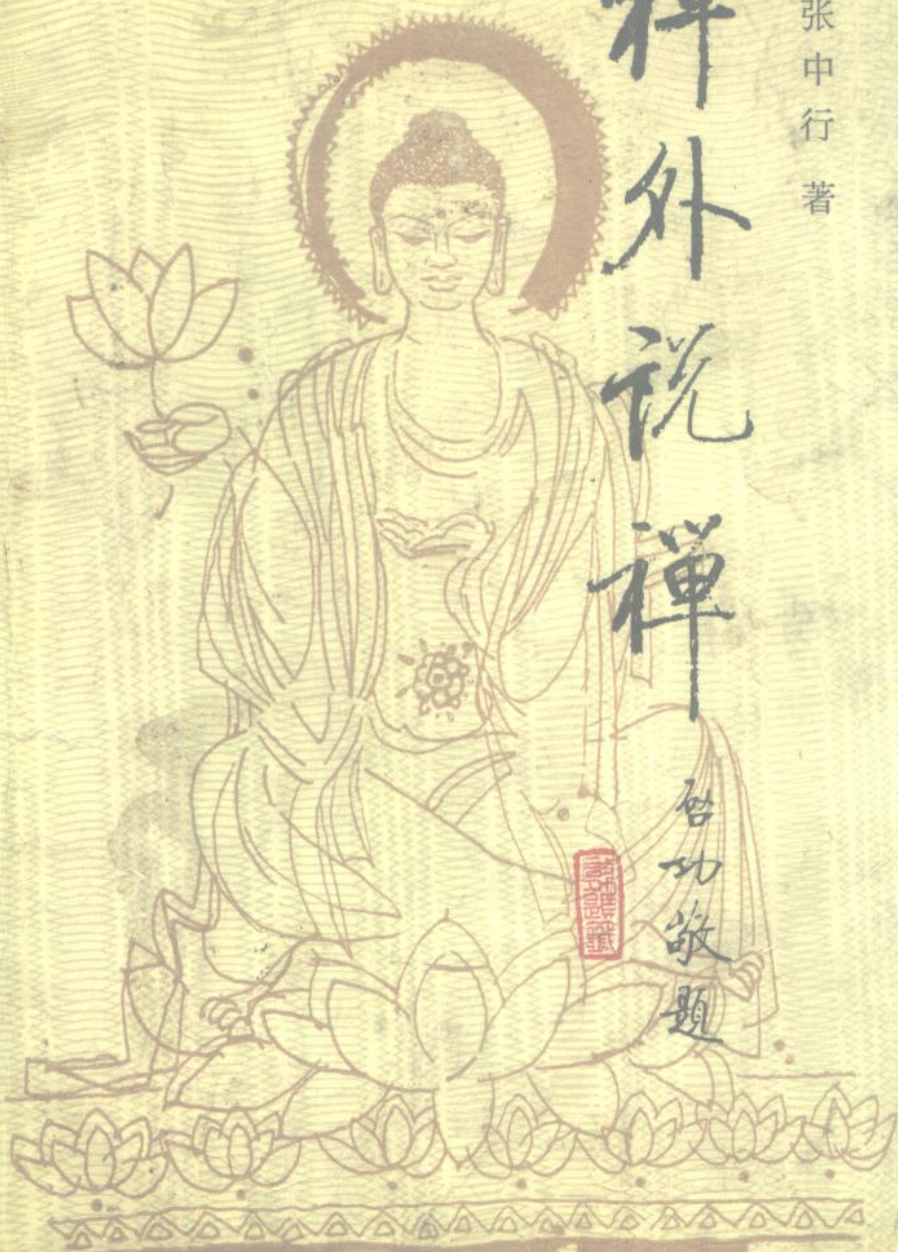 张中行 著
禅外说禅
启功敬题